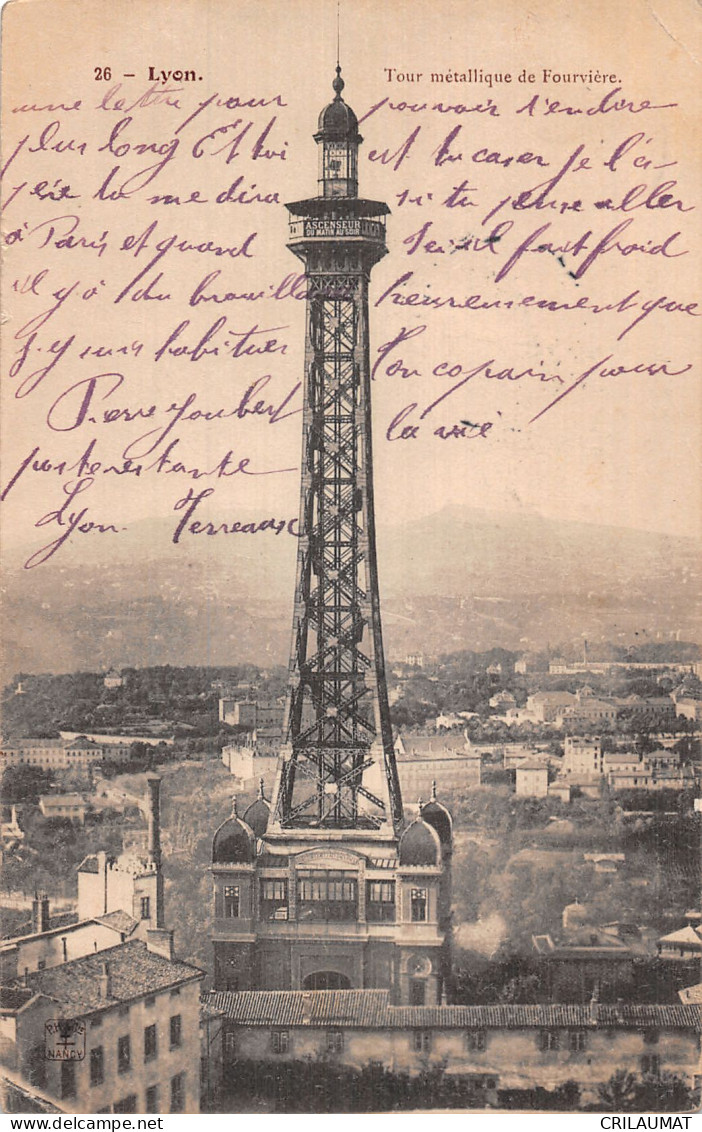 26 – Lyon.
Tour métallique de Fourvière.
une lettre pour pouvoir s'endire
plus long Et toi est tu caser je l'és
père tu me dira si tu pense aller
à Paris et quand Tu il fait froid
il y à du brouilla heureusement que
j y suis habituer Ton copain pour
Pierre Joubert la vie
poste restante
Lyon Terreaux
ASCENSEUR
DU MATIN AU SOIR
NANCY
CRILAUMAT